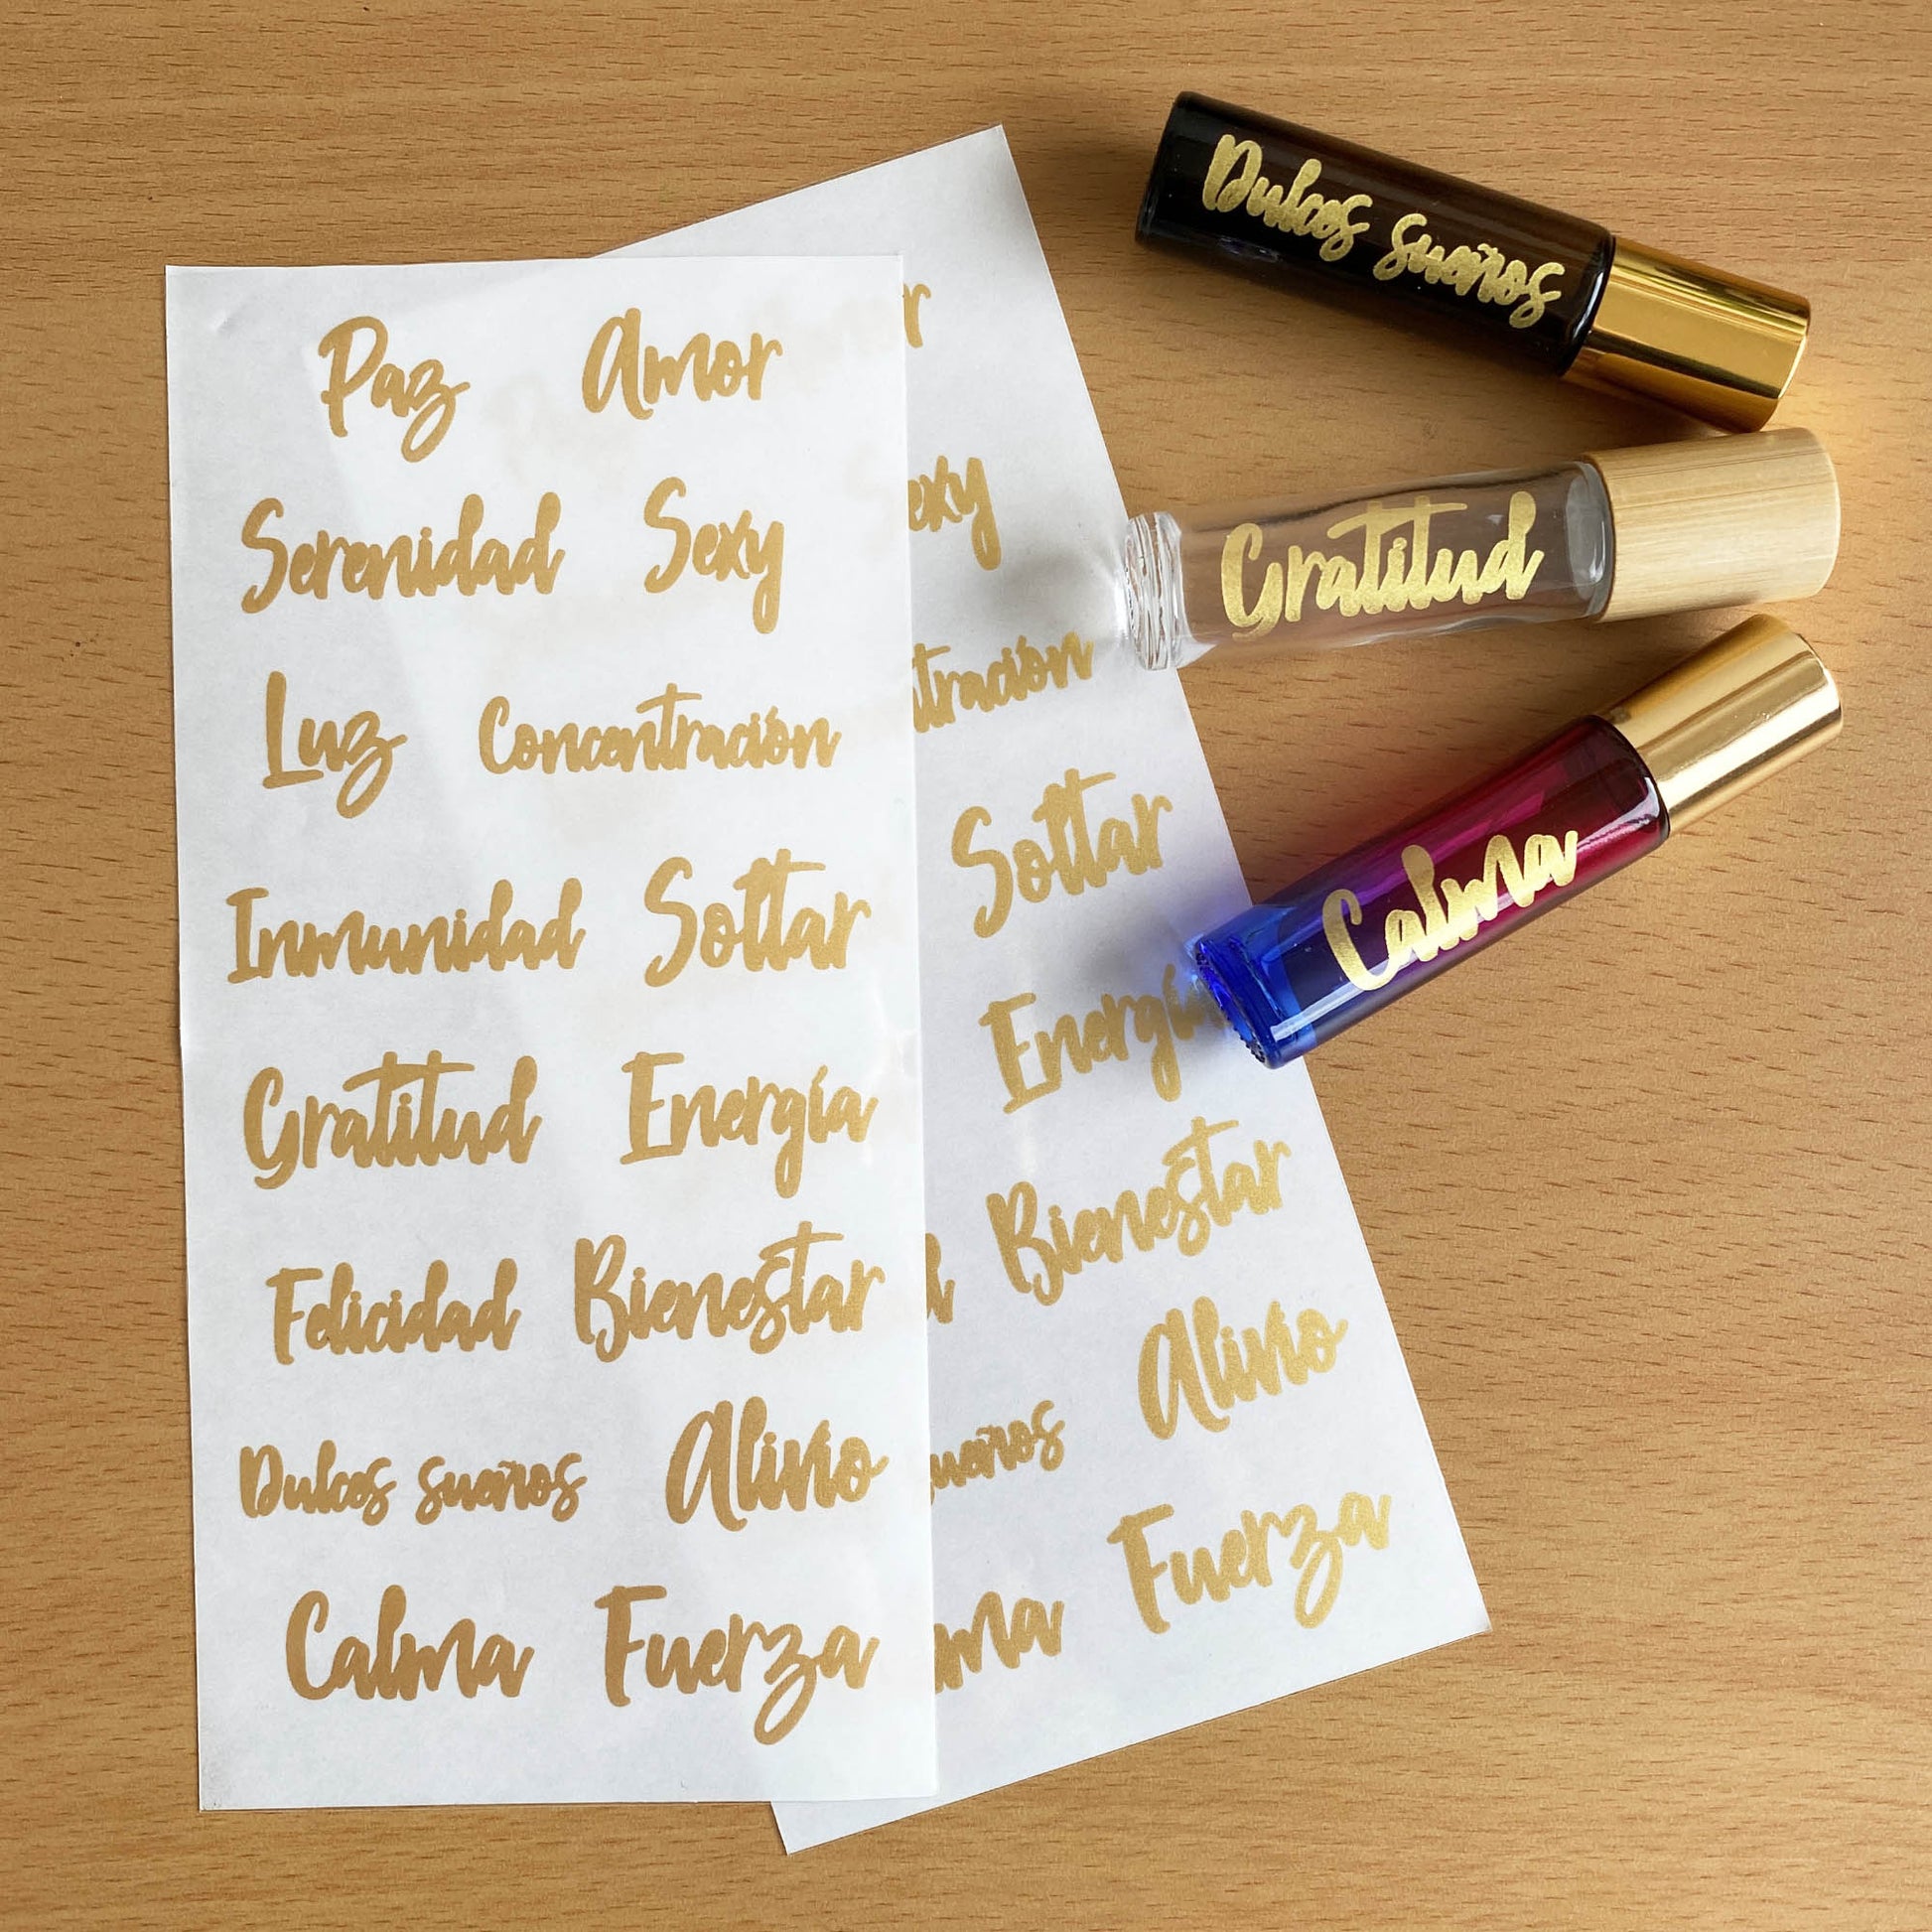 Paz Amor
Serenidad Sexy
Luz Concentración
Inmunidad Soltar
Gratitud Energía
Felicidad Bienestar
Dulces sueños Alivio
Calma Fuerza
Soltar
Energía
Bienestar
Alivio
Fuerza
Dulces sueños
Gratitud
Calma